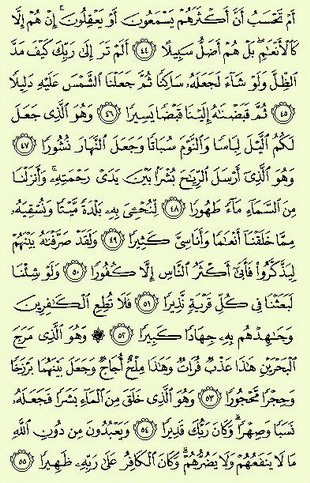 أَمْ تَحْسَبُ أَنَّ أَكْثَرَهُمْ يَسْمَعُونَ أَوْ يَعْقِلُونَ ۚ إِنْ هُمْ إِلَّا
كَالْأَنْعَامِ ۖ بَلْ هُمْ أَضَلُّ سَبِيلًا ﴿٤٤﴾ أَلَمْ تَرَ إِلَىٰ رَبِّكَ كَيْفَ مَدَّ
الظِّلَّ وَلَوْ شَاءَ لَجَعَلَهُ سَاكِنًا ثُمَّ جَعَلْنَا الشَّمْسَ عَلَيْهِ دَلِيلًا
﴿٤٥﴾ ثُمَّ قَبَضْنَاهُ إِلَيْنَا قَبْضًا يَسِيرًا ﴿٤٦﴾ وَهُوَ الَّذِي جَعَلَ
لَكُمُ اللَّيْلَ لِبَاسًا وَالنَّوْمَ سُبَاتًا وَجَعَلَ النَّهَارَ نُشُورًا ﴿٤٧﴾
وَهُوَ الَّذِي أَرْسَلَ الرِّيَاحَ بُشْرًا بَيْنَ يَدَيْ رَحْمَتِهِ ۚ وَأَنْزَلْنَا
مِنَ السَّمَاءِ مَاءً طَهُورًا ﴿٤٨﴾ لِنُحْيِيَ بِهِ بَلْدَةً مَيْتًا وَنُسْقِيَهُ
مِمَّا خَلَقْنَا أَنْعَامًا وَأَنَاسِيَّ كَثِيرًا ﴿٤٩﴾ وَلَقَدْ صَرَّفْنَاهُ بَيْنَهُمْ
لِيَذَّكَّرُوا فَأَبَىٰ أَكْثَرُ النَّاسِ إِلَّا كُفُورًا ﴿٥٠﴾ وَلَوْ شِئْنَا
لَبَعَثْنَا فِي كُلِّ قَرْيَةٍ نَذِيرًا ﴿٥١﴾ فَلَا تُطِعِ الْكَافِرِينَ
وَجَاهِدْهُمْ بِهِ جِهَادًا كَبِيرًا ﴿٥٢﴾ ۞ وَهُوَ الَّذِي مَرَجَ
الْبَحْرَيْنِ هَٰذَا عَذْبٌ فُرَاتٌ وَهَٰذَا مِلْحٌ أُجَاجٌ وَجَعَلَ بَيْنَهُمَا بَرْزَخًا
وَحِجْرًا مَحْجُورًا ﴿٥٣﴾ وَهُوَ الَّذِي خَلَقَ مِنَ الْمَاءِ بَشَرًا فَجَعَلَهُ
نَسَبًا وَصِهْرًا ۗ وَكَانَ رَبُّكَ قَدِيرًا ﴿٥٤﴾ وَيَعْبُدُونَ مِنْ دُونِ اللَّهِ
مَا لَا يَنْفَعُهُمْ وَلَا يَضُرُّهُمْ ۗ وَكَانَ الْكَافِرُ عَلَىٰ رَبِّهِ ظَهِيرًا ﴿٥٥﴾